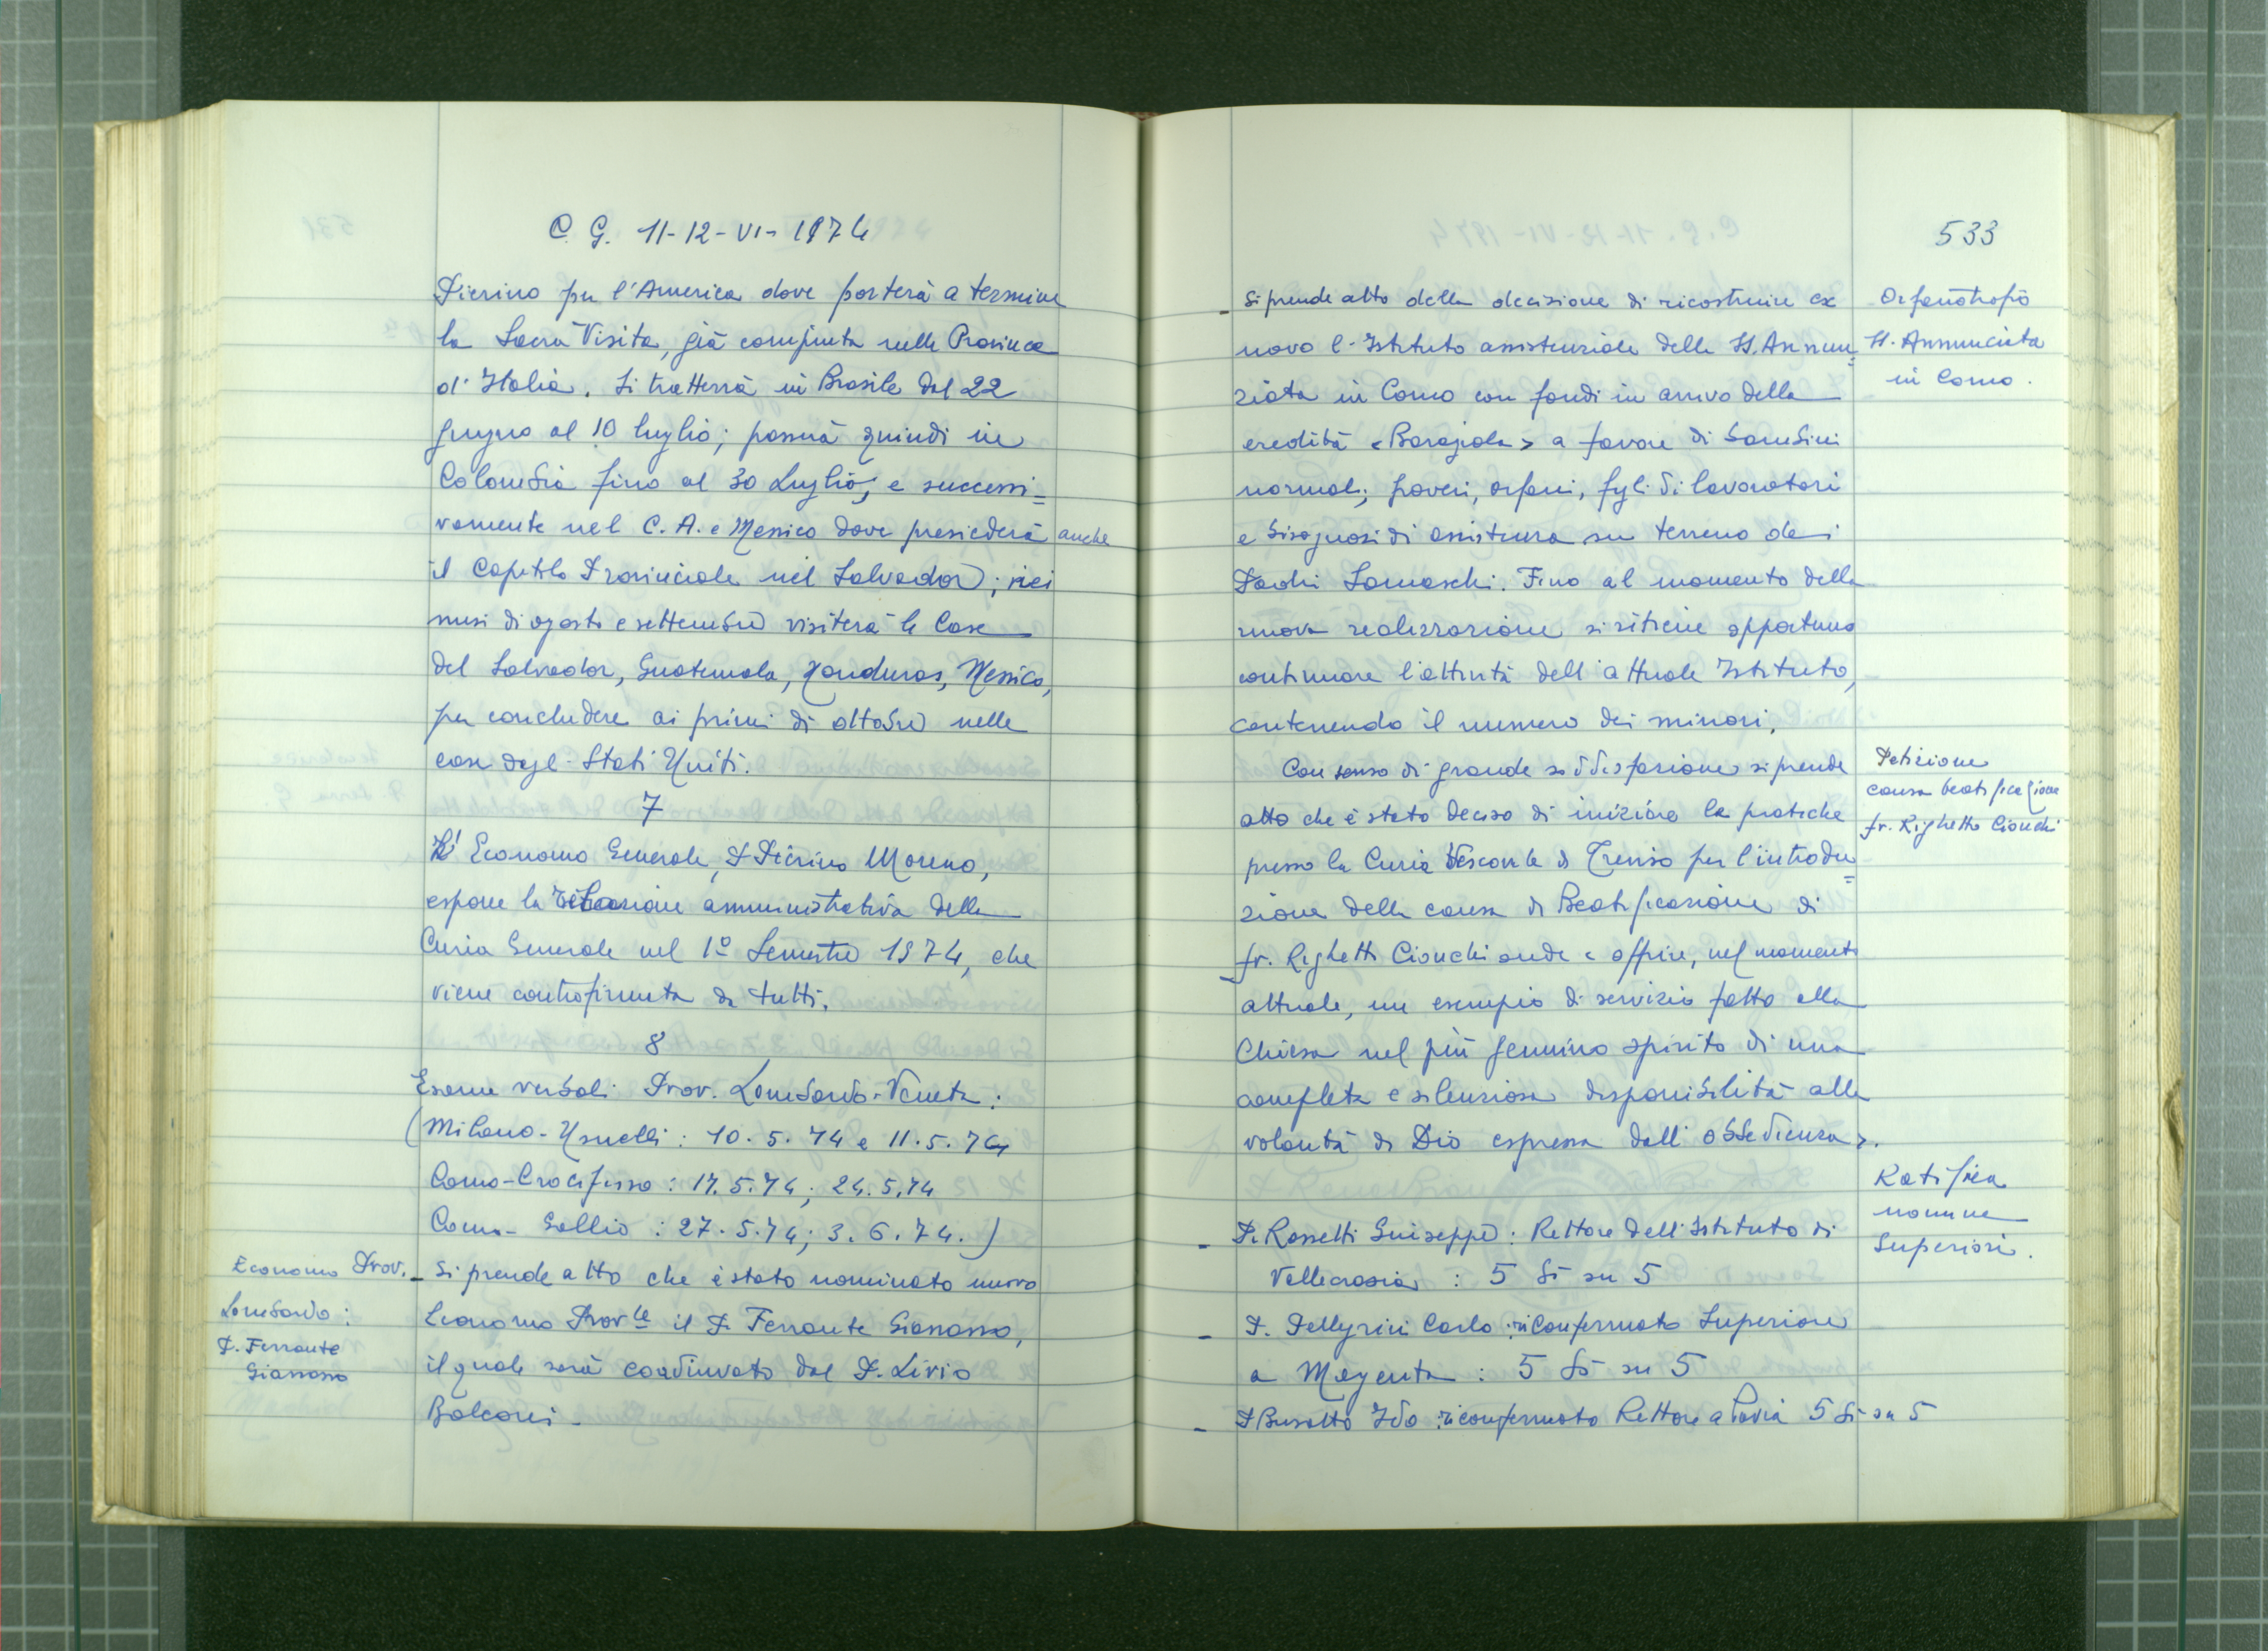 C. G. 11-12-VI-1974
Pierino per l'America dove porterà a termine
la Sacra Visita, già compiuta nelle Province
d'Italia. Si tratterrà in Brasile dal 22
giugno al 10 luglio; passerà quindi in
Colombia fino al 30 Luglio, e successi=
vamente nel C. A. e Messico dove presiederà anche
il Capitolo Provinciale nel Salvador; nei
mesi di agosto e settembre visiterà le Case
del Salvador, Guatemala, Honduras, Messico,
per concludere ai primi di ottobre nelle
case degli Stati Uniti.
7
L'Economo Generale, P. Pierino Moreno,
espone la relazione amministrativa della
Curia Generale nel 1º Semestre 1974, che
viene controfirmata da tutti.
8
Esame verbali Prov. Lombardo-Veneta:
(Milano-Usuelli: 10.5.74 e 11.5.74
Como-Crocifisso: 17.5.74; 24.5.74
Como-Gallio: 27.5.74; 3.6.74.)
Economo Prov.
Lombardo:
P. Ferrante
Gianasso
- Si prende atto che è stato nominato nuovo
Economo Prov.le il P. Ferrante Gianasso,
il quale sarà coadiuvato dal P. Livio
Balconi -
533
- Si prende atto della decisione di ricostruire ex
novo l'Istituto assistenziale della SS. Annun=
ziata in Como con fondi in arrivo della
eredità <Baragiola> a favore di bambini
normali, poveri, orfani, figli di lavoratori
e bisognosi di assistenza su terreno dei
Padri Somaschi. Fino al momento della
nuova realizzazione si ritiene opportuno
continuare l'attività dell'attuale Istituto,
contenendo il numero dei minori.
Orfanotrofio
SS. Annunciata
in Como.
Con senso di grande soddisfazione si prende
atto che è stato deciso di iniziare le pratiche
presso la Curia Vescovile di Treviso per l'introdu=
zione della causa di Beatificazione di
fr. Righetto Cionchi onde < offrire, nel momento
attuale, un esempio di servizio fatto alla
Chiesa nel più genuino spirito di una
completa e silenziosa disponibilità alla
volontà di Dio espressa dall'obbedienza>.
Petizione
causa beatificazione
fr. Righetto Cionchi
Ratifica
nomine
Superiori.
- P. Rossetti Giuseppe: Rettore dell'Istituto di
Vallecrosia: 5 Sì su 5
- P. Pellegrini Carlo: riconfermato Superiore
a Magenta: 5 Sì su 5
- P. Busatto Ido: riconfermato Rettore a Pavia 5 Sì su 5